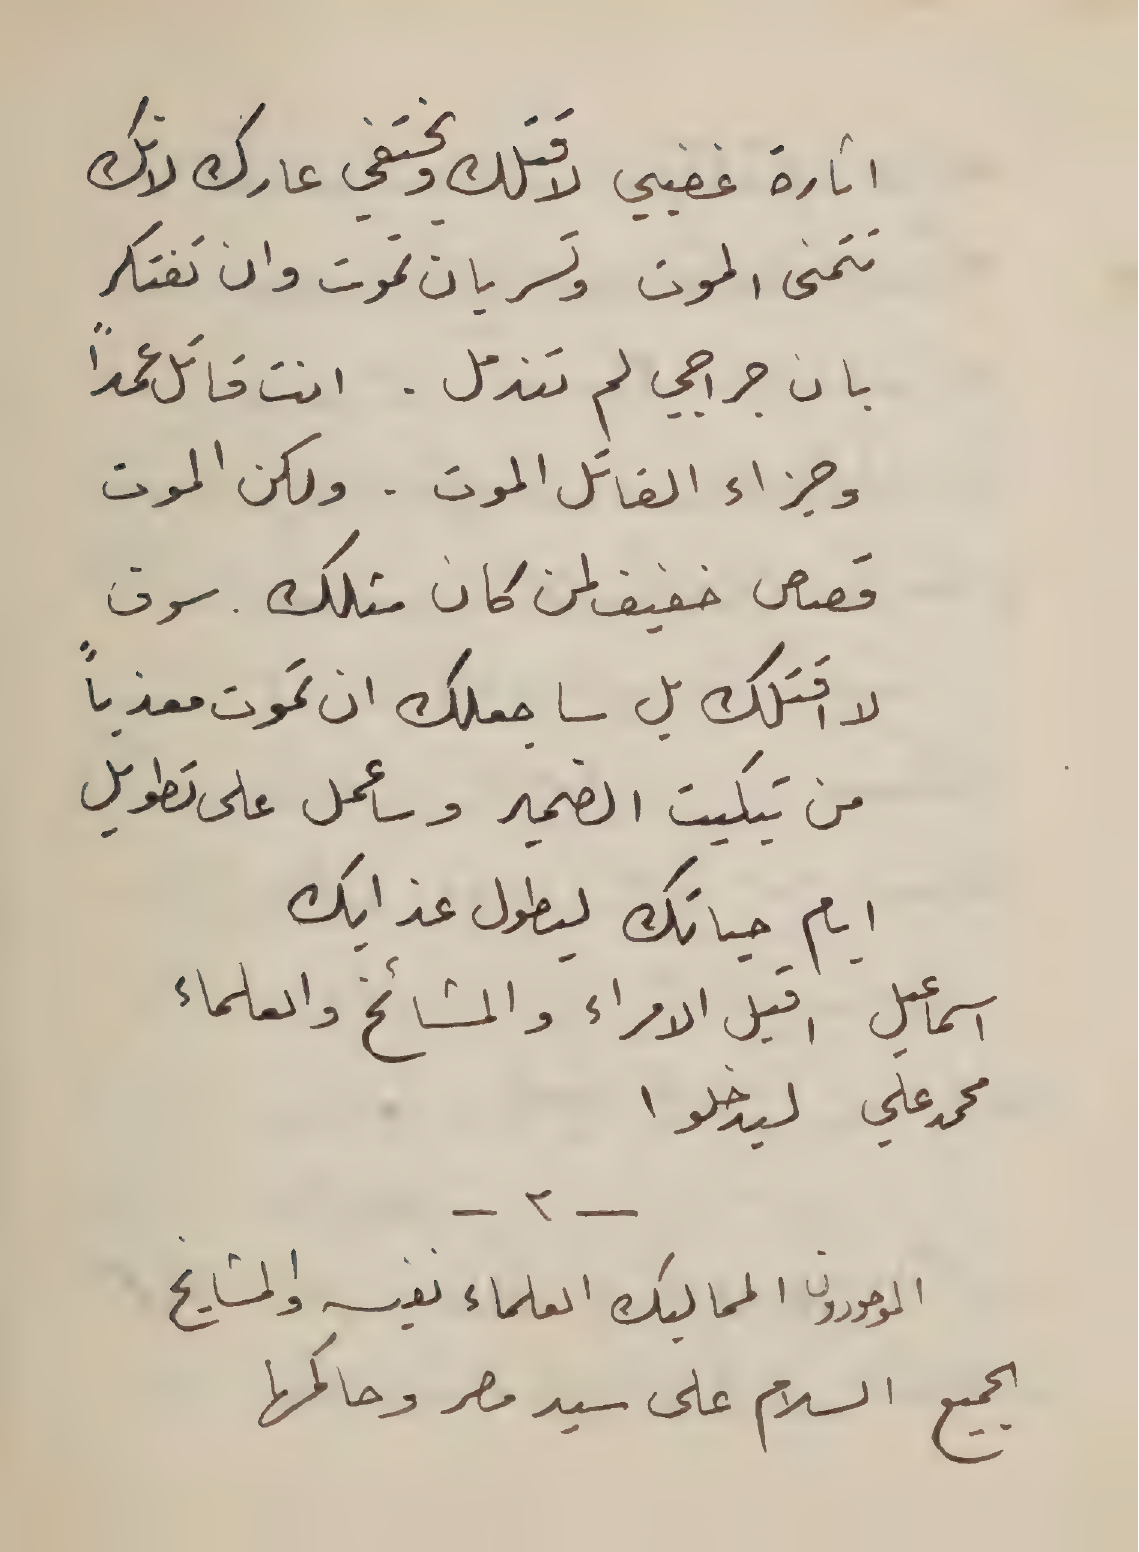 اثارة غضبي لاقتلك ويختفي عارك لانك
تتمنى الموت وتسر بان تموت وان تفتكر
بان جراحي لم تندمل . انت قاتل عمداً
وجزاء القاتل الموت . ولكن الموت
قصاص خفيف لمن كان مثلك . سوف
لا اقتلك بل ساجعلك ان تموت معذباً
من تبكيت الضمير وساعمل على تطويل
ايام حياتك ليطول عذابك
اسماعيل اقبل الامراء والمشائخ والعلماء
محمد علي ليدخلوا
— ٣ —
الموجودون المماليك العلماء نفيسه والمشايخ
الجميع السلام على سيد مصر وحاكمها